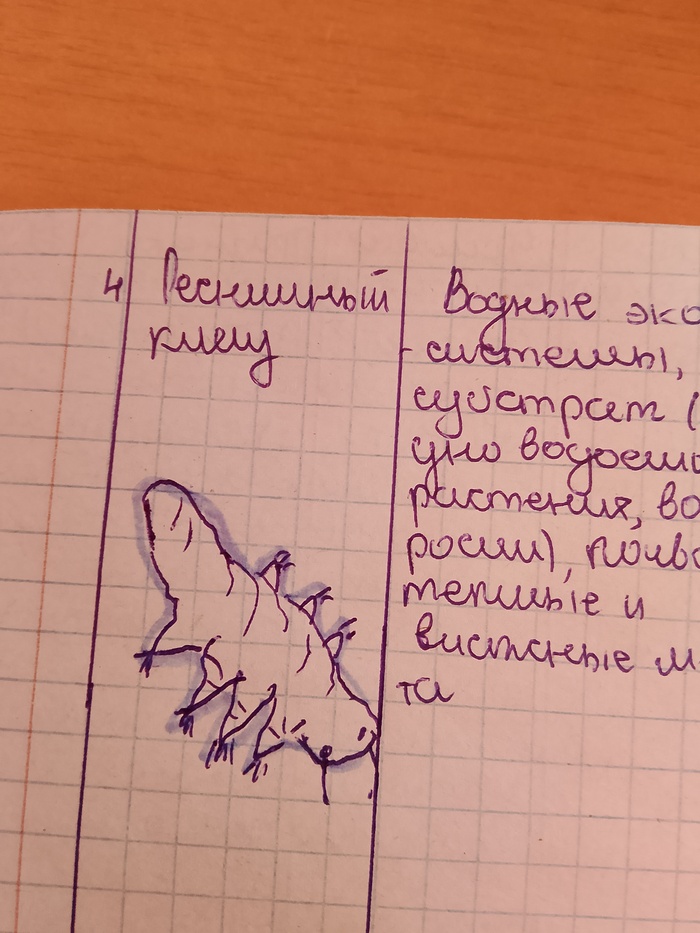 4
Ресничный
клещ
Водные эко
-системы,
субстрат (
дно водоемо
растения, во
росли), почв
теплые и
влажные м
та